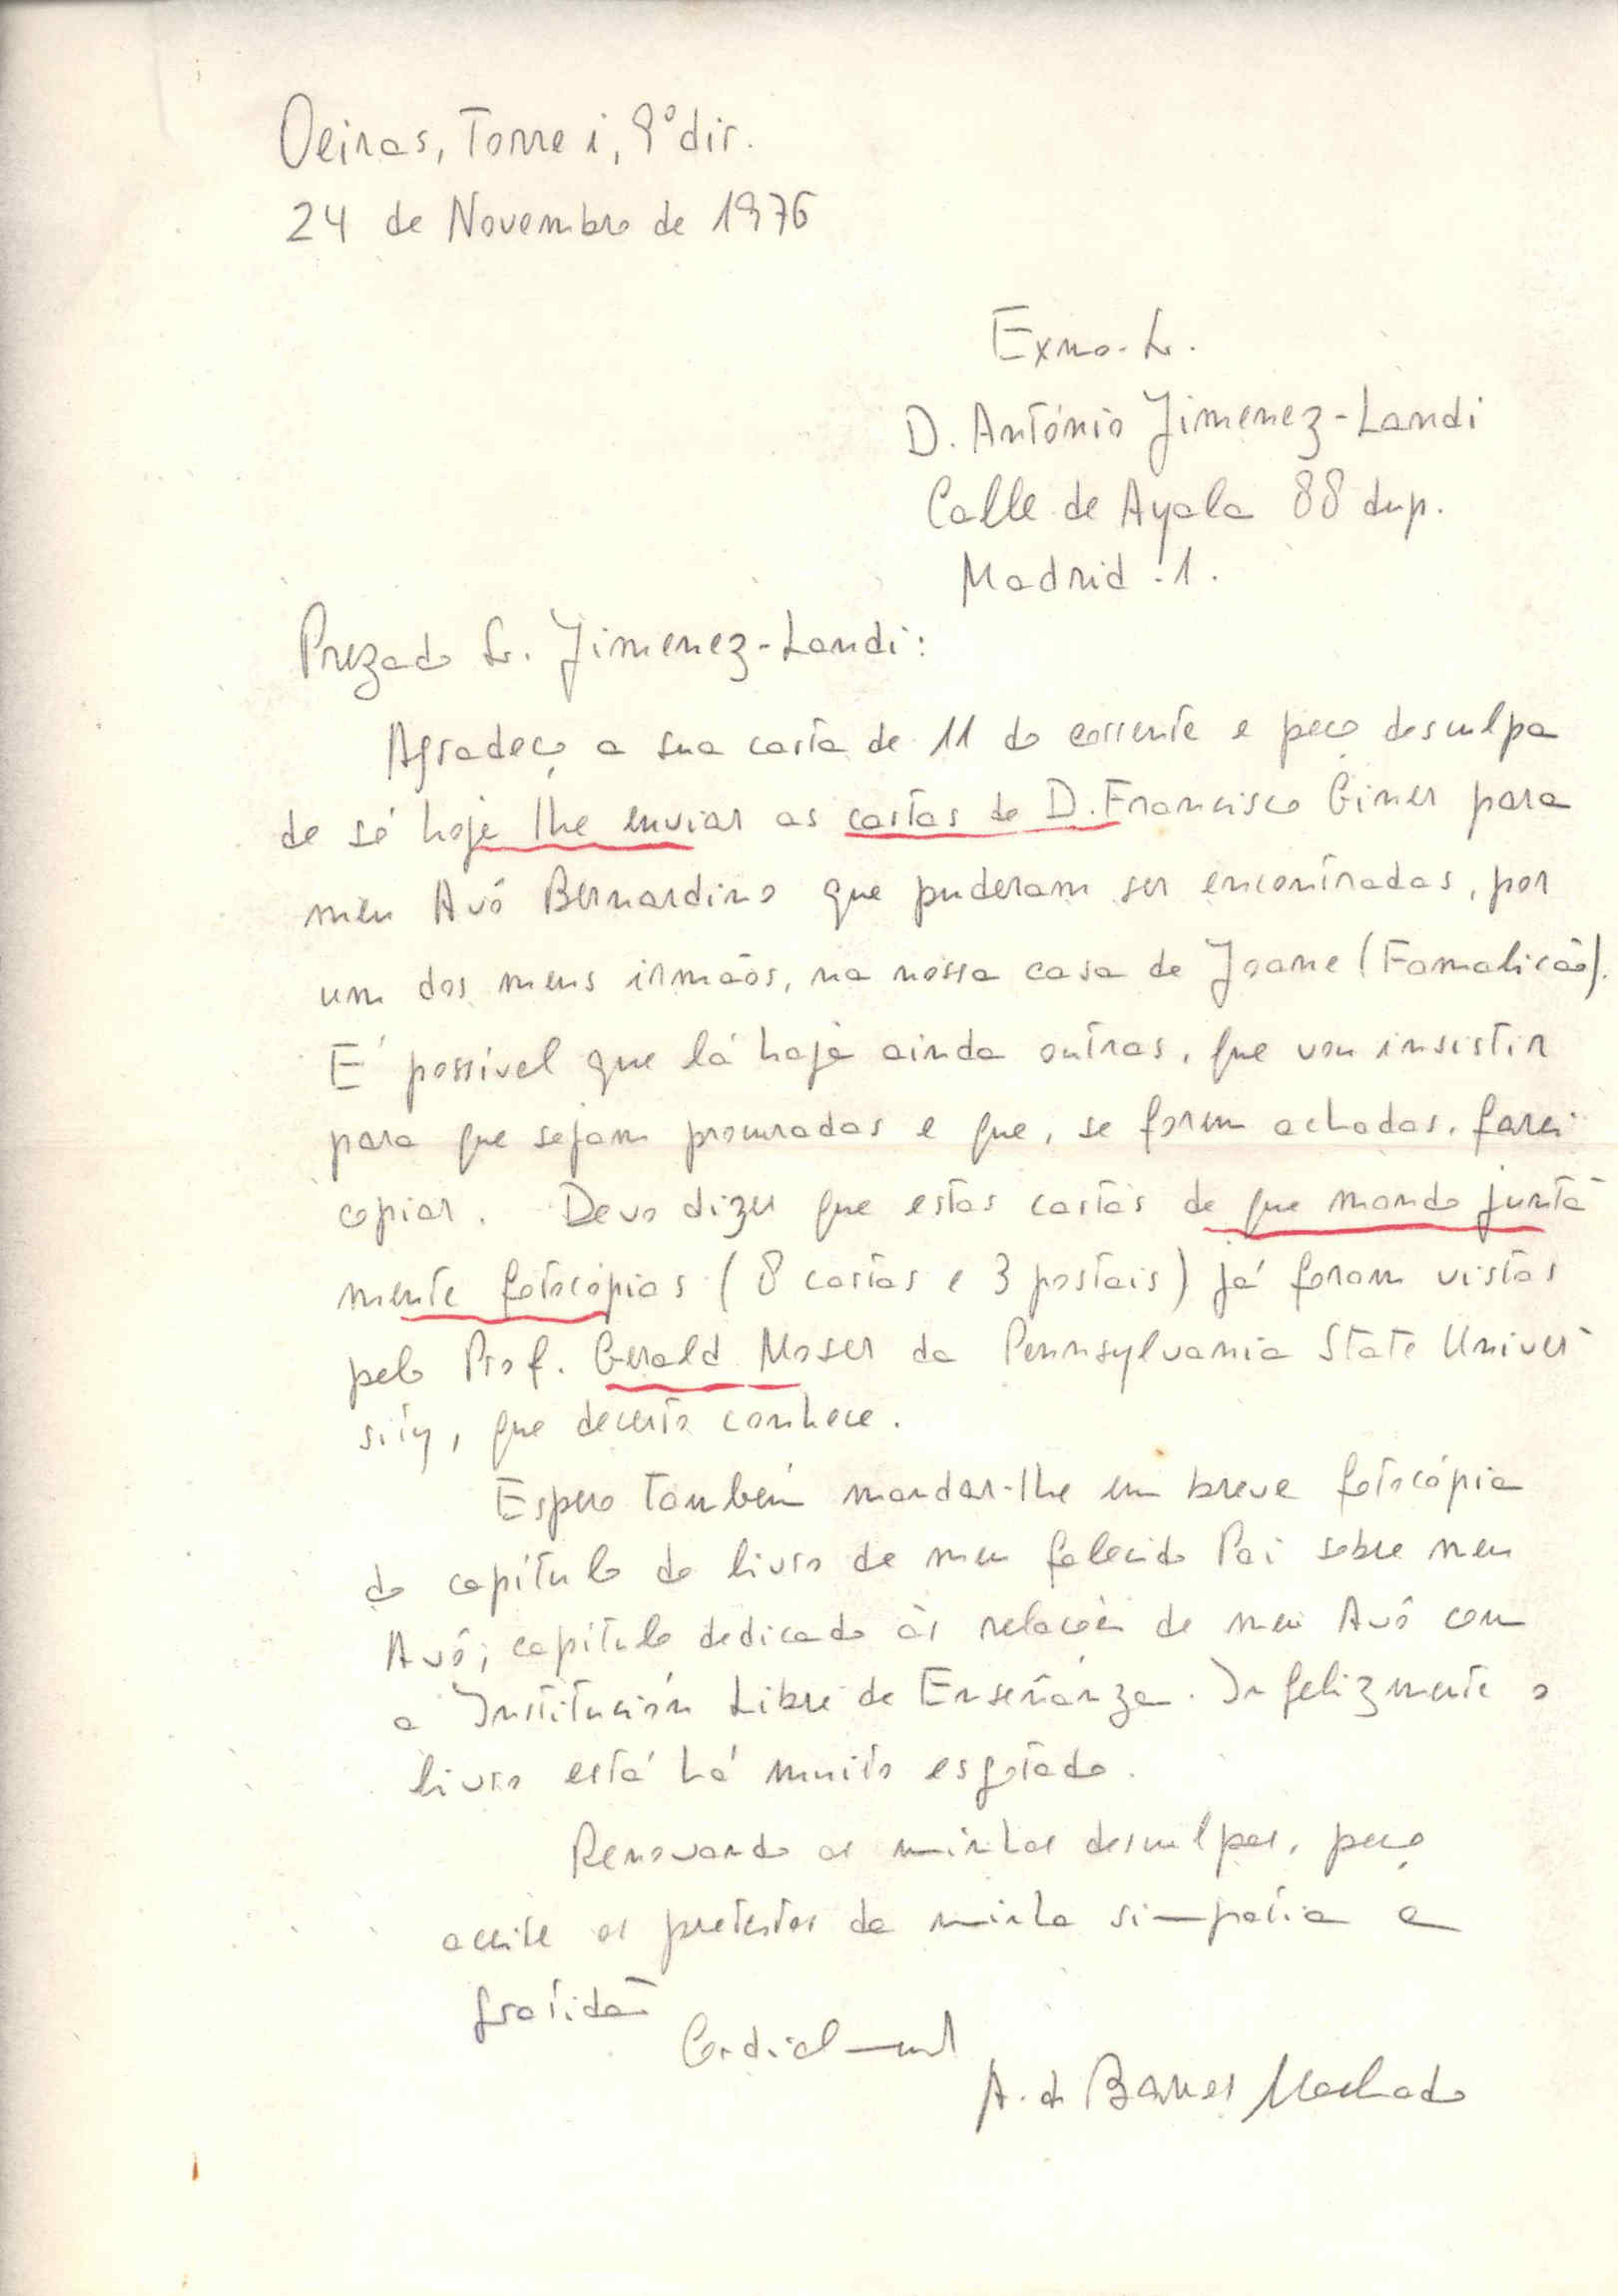 Oeiras, Torre i, 9º dir.
24 de Novembro de 1976
Exmo. Sr.
D. António Jimenez-Landi
Calle de Ayala 88 dup.
Madrid-1.
Prezado Sr. Jimenez-Landi:
Agradeço a sua carta de 11 do corrente e peço desculpa
de só hoje lhe enviar as cartas de D. Francisco Giner para
meu Avô Bernardino que puderam ser encontradas, por
um dos meus irmãos, na nossa casa de Joane (Famalicão).
É possível que lá haja ainda outras, que vou insistir
para que sejam procuradas e que, se forem achadas, farei
copiar. Devo dizer que estas cartas de que mando junta-
mente fotocópias (8 cartas e 3 postais) já foram vistas
pelo Prof. Gerald Moser da Pennsylvania State Univer-
sity, que decerto conhece.
Espero também mandar-lhe em breve fotocópia
do capítulo do livro de meu falecido Pai sobre meu
Avô, capítulo dedicado às relações de meu Avô com
a Institución Libre de Enseñanza. Infelizmente o
livro está há muito esgotado.
Renovando as minhas desculpas, peço
aceite os protestos da minha simpatia e
gratidão
Cordialmente
A. de Barros Machado